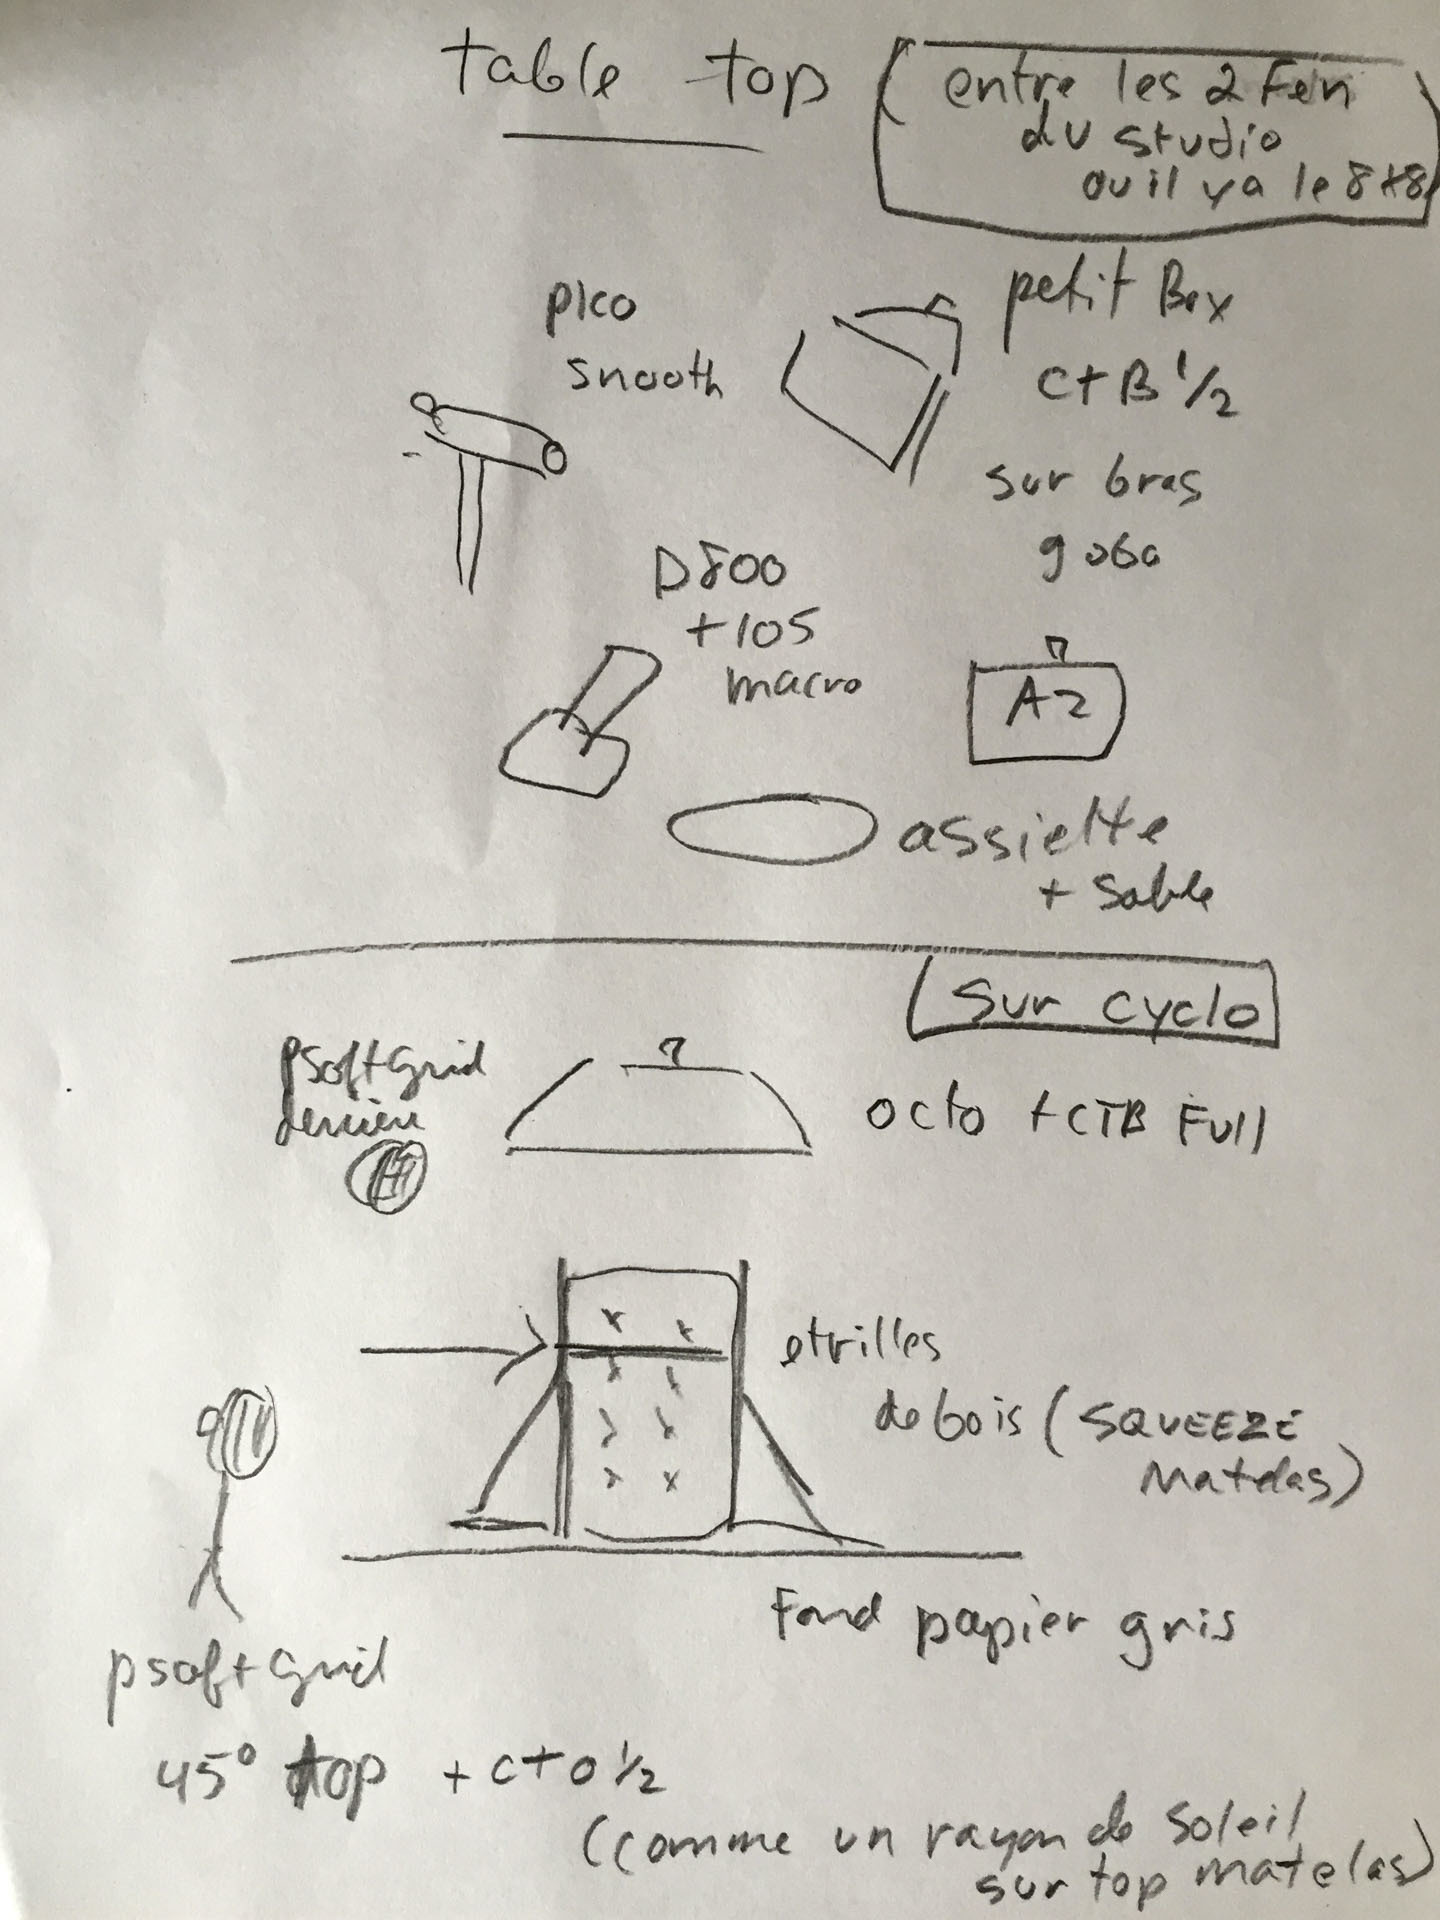 table top
(entre les 2 Fen
du studio
ou il ya le 8x8
pico
snooth
petit Box
CTB 1/2
sur bras
gobo
D800
+105
macro
A2
assiette
+ sable
Sur cyclo
psoft Grid
derriere
octo + CTB Full
etrilles
de bois (SQUEEZE
Matelas)
Fond papier gris
psoft Grid
45° top + CTO 1/2
(comme un rayon de soleil
sur top matelas)